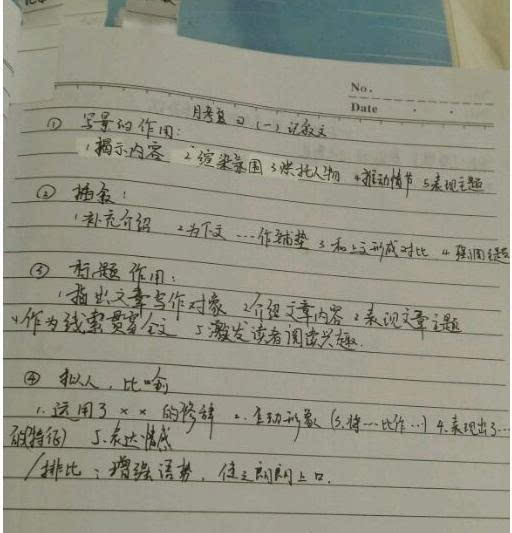 No.
Date
月考复习(一)记叙文
① 写景的作用:
1揭示内容 2渲染氛围 3烘托人物 4推动情节 5表现主题
② 插叙:
1补充介绍 2为下文…作铺垫 3和上文形成对比 4强调主题
③ 标题作用:
1指出文章写作对象 2介绍文章内容 2表现文章主题
4作为线索贯穿全文 5激发读者阅读兴趣.
④ 拟人,比喻
1.运用了××的修辞 2.生动形象(3.将…比作…)4.表现出了…
的特征) 5.表达情感
/排比:增强语势,使之朗朗上口.